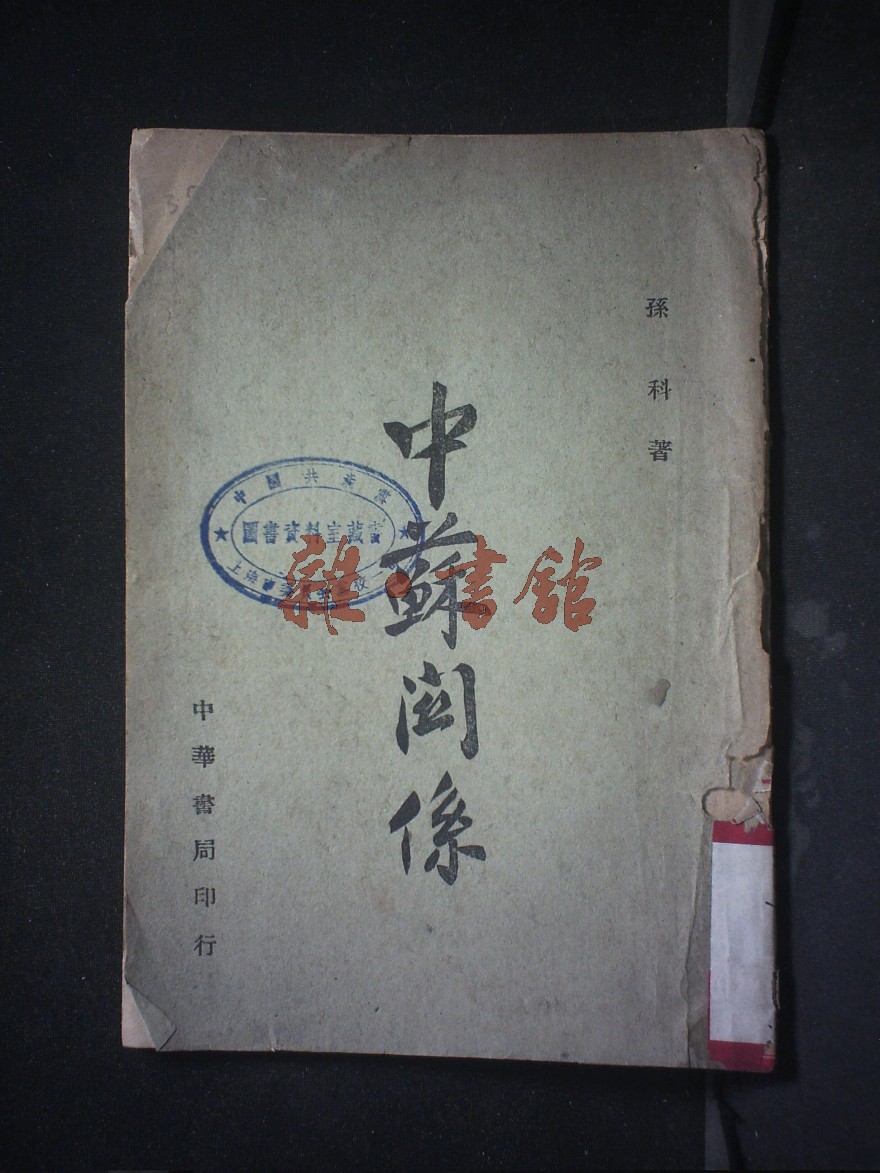 孫科著
中蘇関係
中華書局印行
中國共產黨
圖書資料室藏書
雜·書館